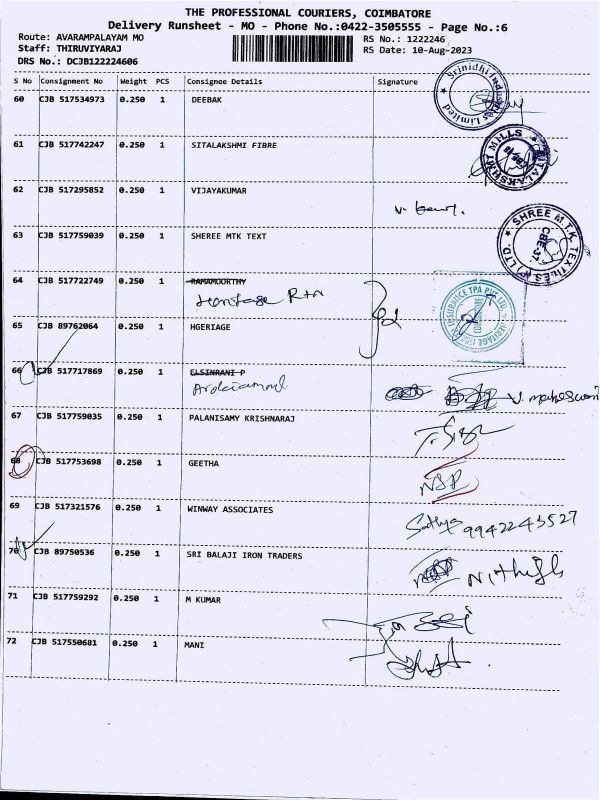 THE PROFESSIONAL COURIERS, COIMBATORE
Delivery Runsheet - MO - Phone No.:0422-3505555 - Page No.:6
Route: AVARAMPALAYAM MO RS No.: 1222246
Staff: THIRUVIYARAJ RS Date: 10-Aug-2023
DRS No.: DCJB122224606
S No Consignment No Weight PCS Consignee Details Signature
60 CJB 517534973 0.250 1 DEEBAK
Srinidhi Industries Limited
61 CJB 517742247 0.250 1 SITALAKSHMI FIBRE
SITALAKSHMI MILLS
62 CJB 517295852 0.250 1 VIJAYAKUMAR
63 CJB 517759039 0.250 1 SHEREE MTK TEXT
SHREE M.T.K. TEXTILES (P) LTD.
CBE-37.
64 CJB 517722749 0.250 1 RAMAMOORTHY
INSURANCE TPA PVT LTD HERITAGE
65 CJB 89762064 0.250 1 HGERIAGE
66 CJB 517717869 0.250 1 ELSINRANI P
V. maheswari
67 CJB 517759035 0.250 1 PALANISAMY KRISHNARAJ
68 CJB 517753698 0.250 1 GEETHA
NSP
69 CJB 517321576 0.250 1 WINWAY ASSOCIATES
Sathya 9942243527
70 CJB 89750536 0.250 1 SRI BALAJI IRON TRADERS
71 CJB 517759292 0.250 1 M KUMAR
72 CJB 517550681 0.250 1 MANI